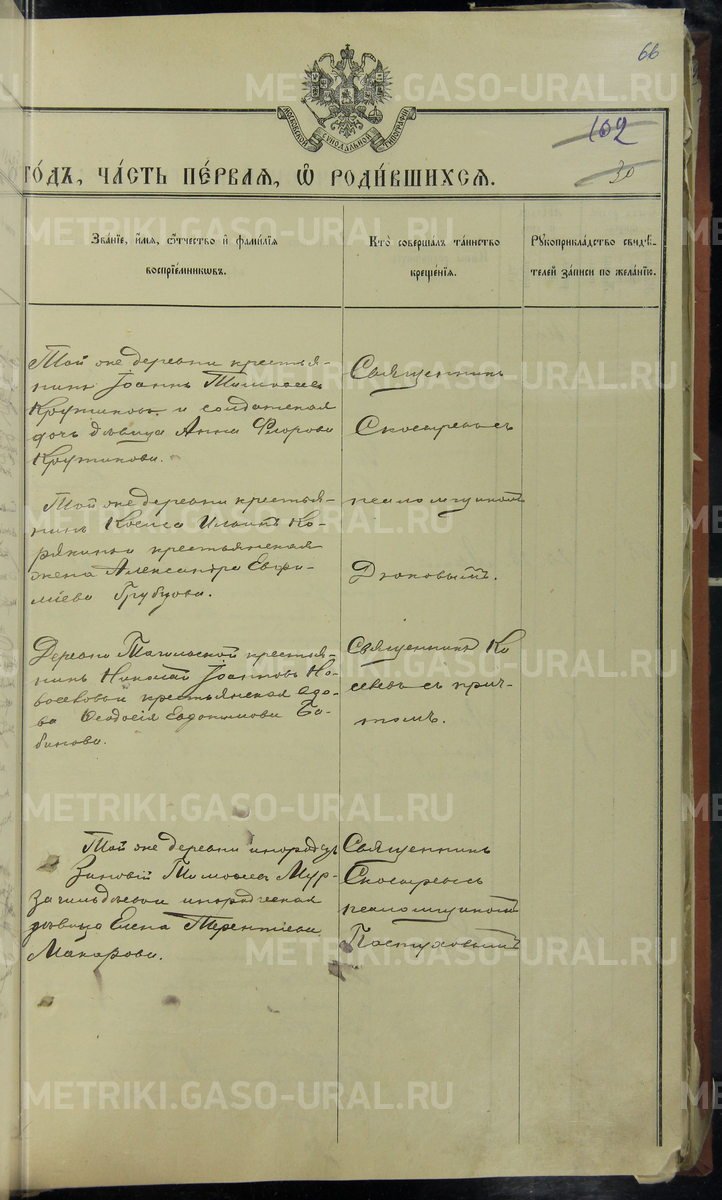 66
МОСКОВСКОЙ СѴНОДАЛЬНОЙ ТИПОГРАФІИ
102
30
ГО́ДЪ, ЧА́СТЬ ПЕ́РВАЯ, Ѡ РОДИ́ВШИХСѦ.
Зва́нїе, и́мѧ, ѻ҆́тчество и҆ фами́лїѧ
воспрїе́мникѡвъ.
Кто̀ соверша́лъ та́инство
креще́нїѧ.
Рꙋкоприкла́дство свидѣ́-
телей за́писи по жела́нїю.
Той же деревни крестья-
нинъ Іоаннъ Тимоѳеевъ
Крутиковъ и солдатская
дочь дѣвица Анна Флорова
Крутикова.
Священникъ
Скосыревъ съ
псаломщикомъ
Дюковымъ.
Той же деревни крестья-
нинъ Косма Илыинъ Ко-
рякинъ и крестьянская
жена Александра Евѳи-
міева Грубцова.
Деревни Тагильской крестья-
нинъ Николай Іоанновъ Но-
воселовъ и крестьянская вдо-
ва Ѳеодосія Евдокимова Ба-
бинова.
Священникъ Ко
селевъ съ прич-
томъ.
Той же деревни инородецъ
Зиновій Тимоѳеевъ Мур-
загильдѣевъ и инородческая
дѣвица Елена Терентіева
Макарова.
Священникъ
Скосыревъ съ
псаломщикомъ
Пастуховымъ
METRIKI.GASO-URAL.RU